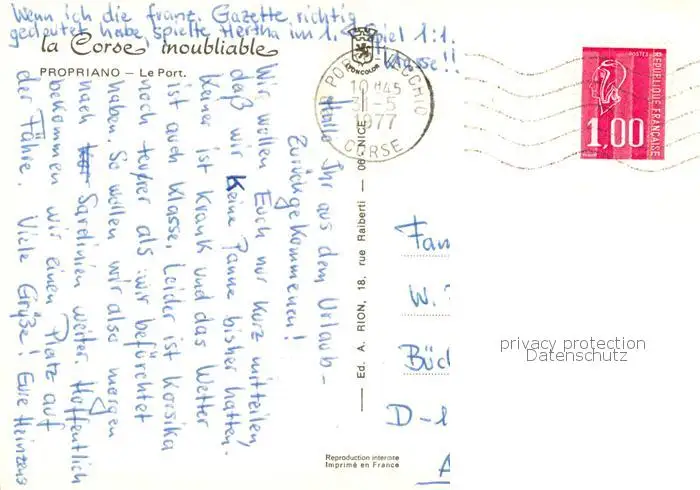 Wenn ich die franz. Gazette richtig
gedeutet habe, spielte Hertha im 1. Spiel 1:1.
Klasse!!
la Corse inoubliable
PROPRIANO – Le Port.
ICONCOLOR
Hallo Ihr aus dem Urlaub-
Zurückgekommenen!
Wir wollen Euch nur kurz mitteilen,
daß wir Keine Panne bisher hatten.
Keiner ist Krank und das Wetter
ist auch Klasse, Leider ist Korsika
noch teurer als wir befürchtet
haben. So wollen wir also morgen
nach Sardinien weiter. Hoffentlich
bekommen wir einen Platz auf
der Fähre. Viele Grüße! Eure Heinzens
Ed. A. RION, 18, rue Raiberti — 06 NICE
Reproduction interdite
Imprimé en France
PORTO-VECCHIO
10 H45
31-5
1977
CORSE
POSTES
REPUBLIQUE FRANÇAISE
1,00
Fam
W.
Büc
D-1
privacy protection
Datenschutz